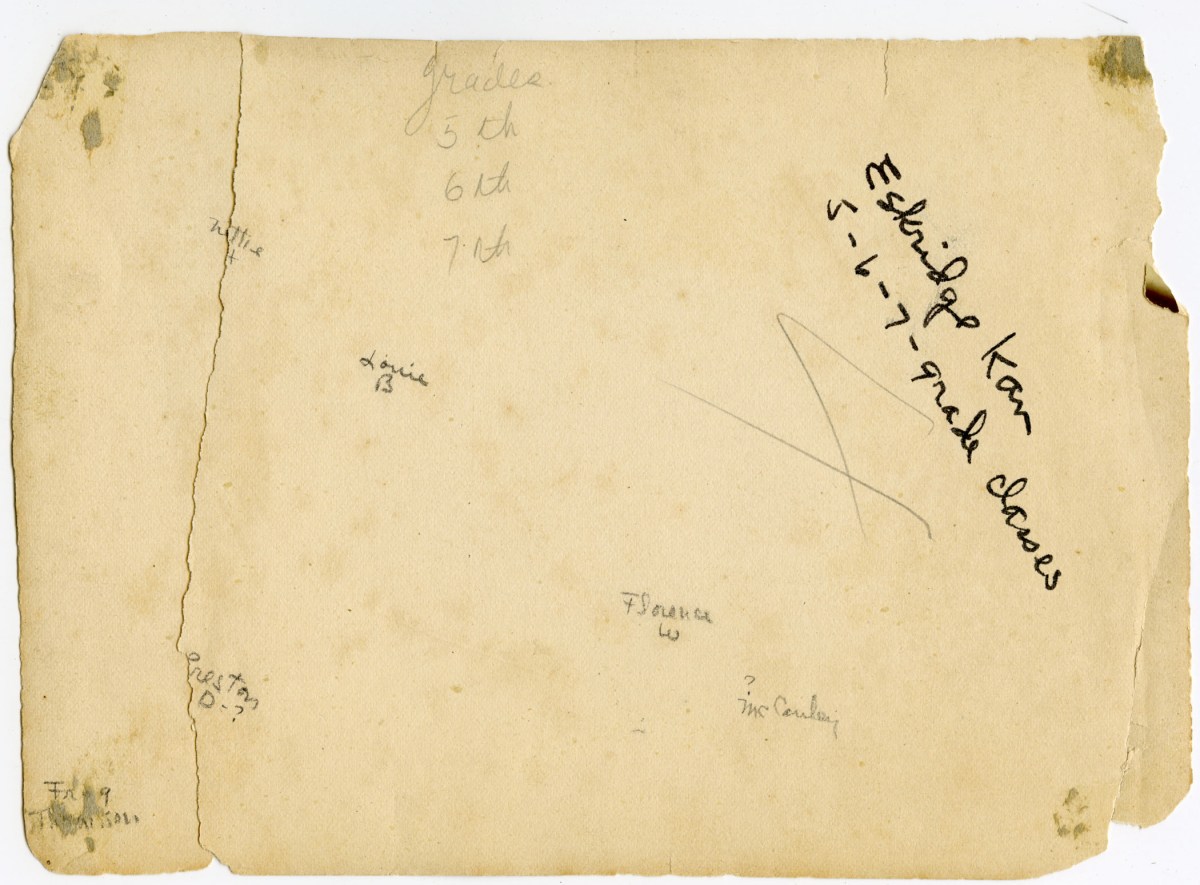 grades
5 th
6 th
7 th
Eskridge Kan
5-6-7-grade classes
Nettie
+
Louie
B
Florence
W
Preston
D-?
?
Mc Cauley